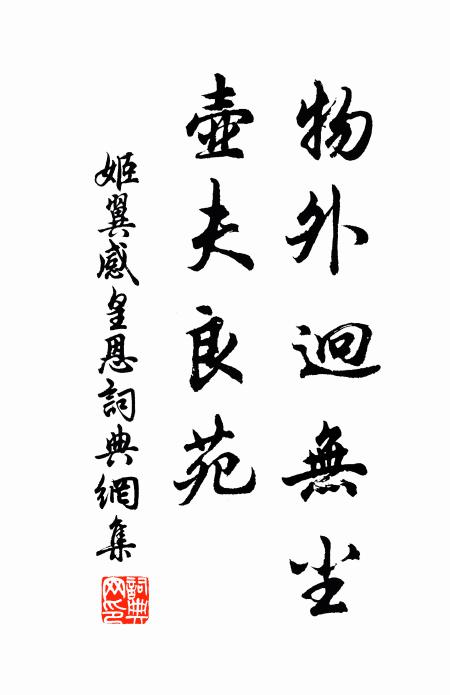 物外迥無尘
壺夫良苑
姬翼感皇恩詞典網集
詞典
网印